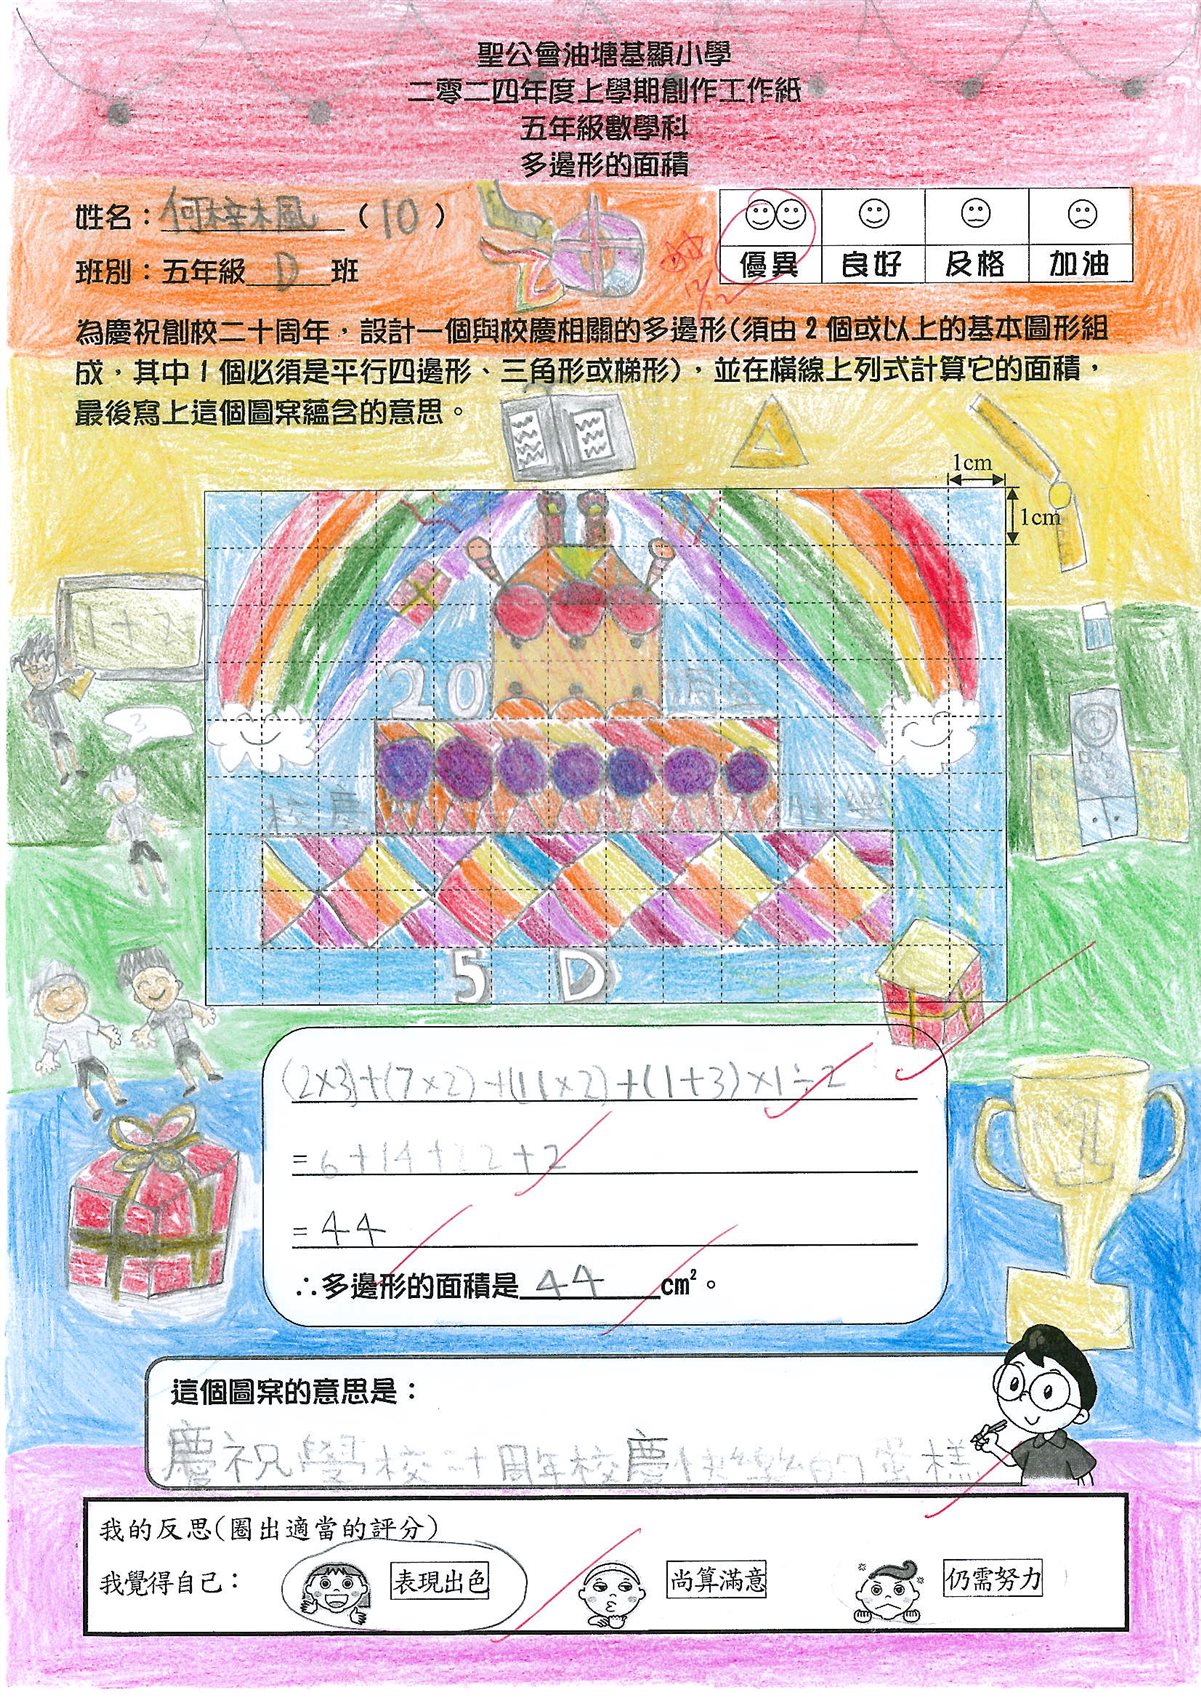 聖公會油塘基顯小學
二零二四年度上學期創作工作紙
五年級數學科
多邊形的面積
姓名：何梓楓（10）
班別：五年級 D 班
優異 良好 及格 加油
為慶祝創校二十周年，設計一個與校慶相關的多邊形（須由2個或以上的基本圖形組
成，其中1個必須是平行四邊形、三角形或梯形），並在橫線上列式計算它的面積，
最後寫上這個圖案蘊含的意思。
1cm
1cm
1+2
3
20 周年
校慶 快樂
5 D
(2×3)+(7×2)+(11×2)+(1+3)×1÷2
=6+14+22+2
=44
∴多邊形的面積是 44 cm²。
1
這個圖案的意思是：
慶祝學校二十周年校慶快樂的蛋糕
我的反思（圈出適當的評分）
我覺得自己： 表現出色 尚算滿意 仍需努力